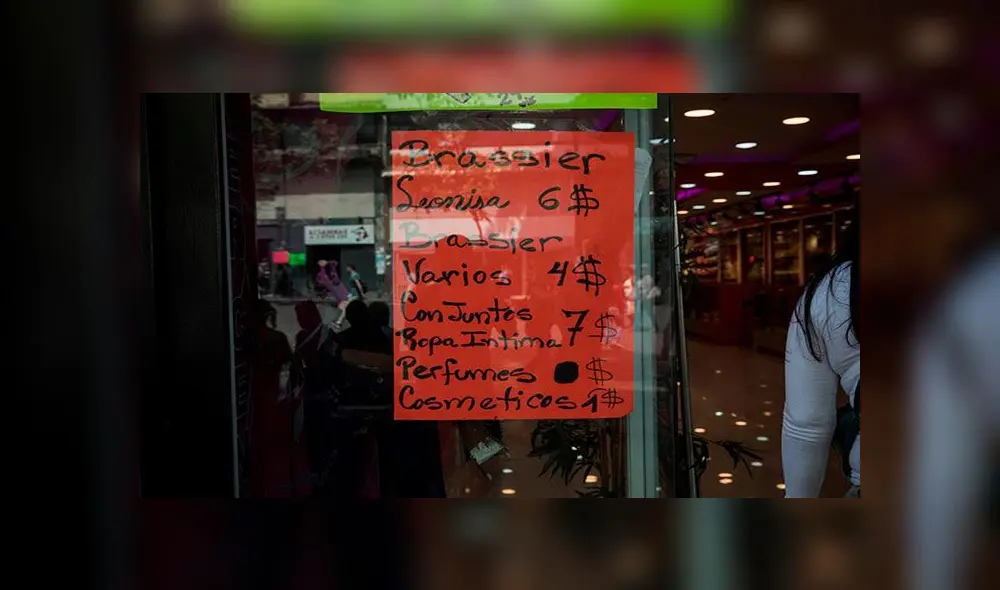 Brassier
Leonisa 6 $
Brassier
Varios 4 $
ConJuntos
Ropa Intima 7 $
Perfumes $
Cosmeticos 1 $